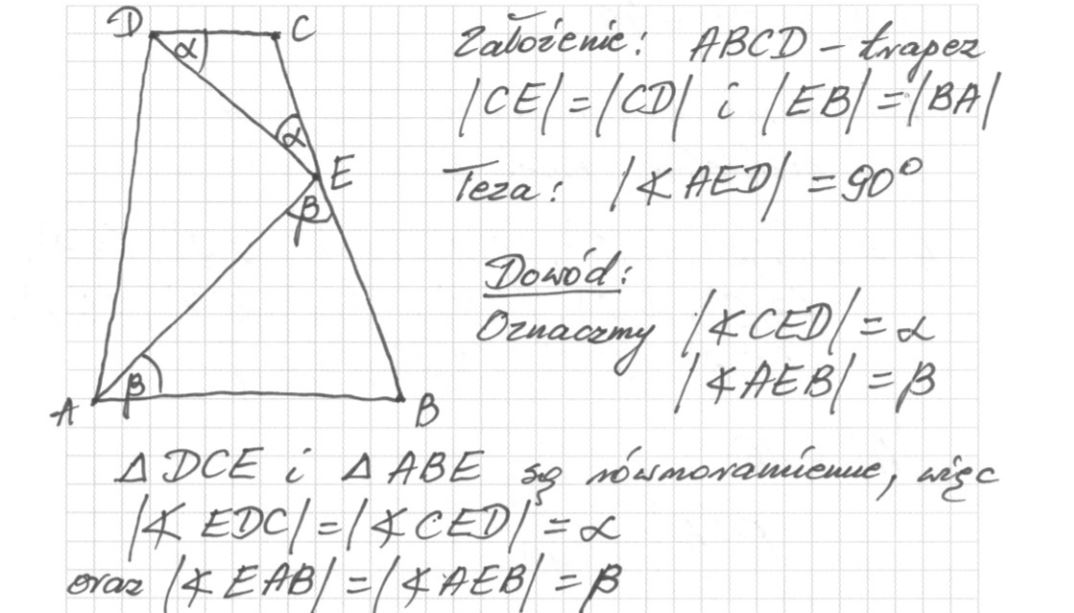 D
α
C
α
E
β
β
A
B
Założenie: ABCD - trapez
|CE| = |CD| i |EB| = |BA|
Teza: |∢AED| = 90°
Dowód:
Oznaczmy |∢CED| = α
|∢AEB| = β
Δ DCE i Δ ABE są równoramienne, więc
|∢EDC| = |∢CED| = α
oraz |∢EAB| = |∢AEB| = β